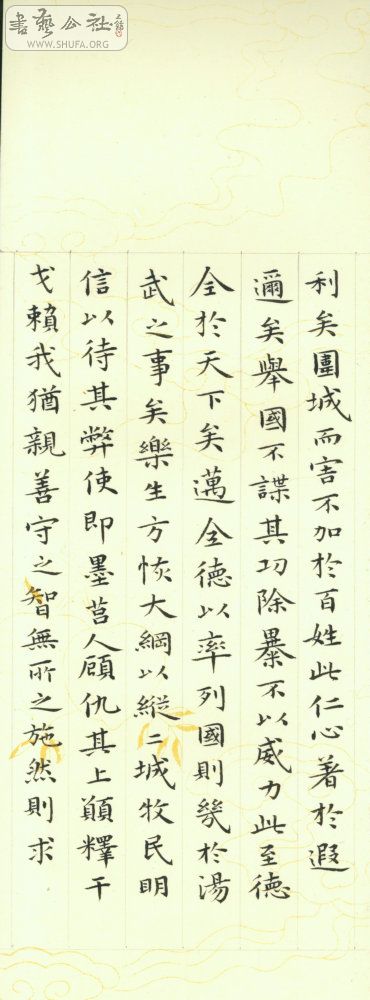 書藝公社
WWW.SHUFA.ORG
利矣圍城而害不加於百姓此仁心著於遐
邇矣舉國不諜其功除暴不以威力此至德
全於天下矣邁全德以率列國則幾於湯
武之事矣樂生方恢大綱以縱二城牧民明
信以待其弊使即墨莒人顧仇其上願釋干
戈賴我猶親善守之智無所之施然則求